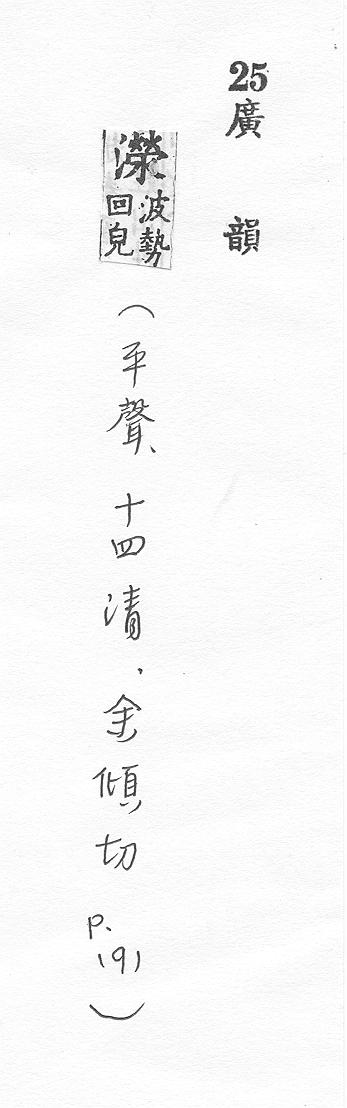 25 廣韻
濚 波勢回皃 (平聲、十四清,余傾切 p.191)